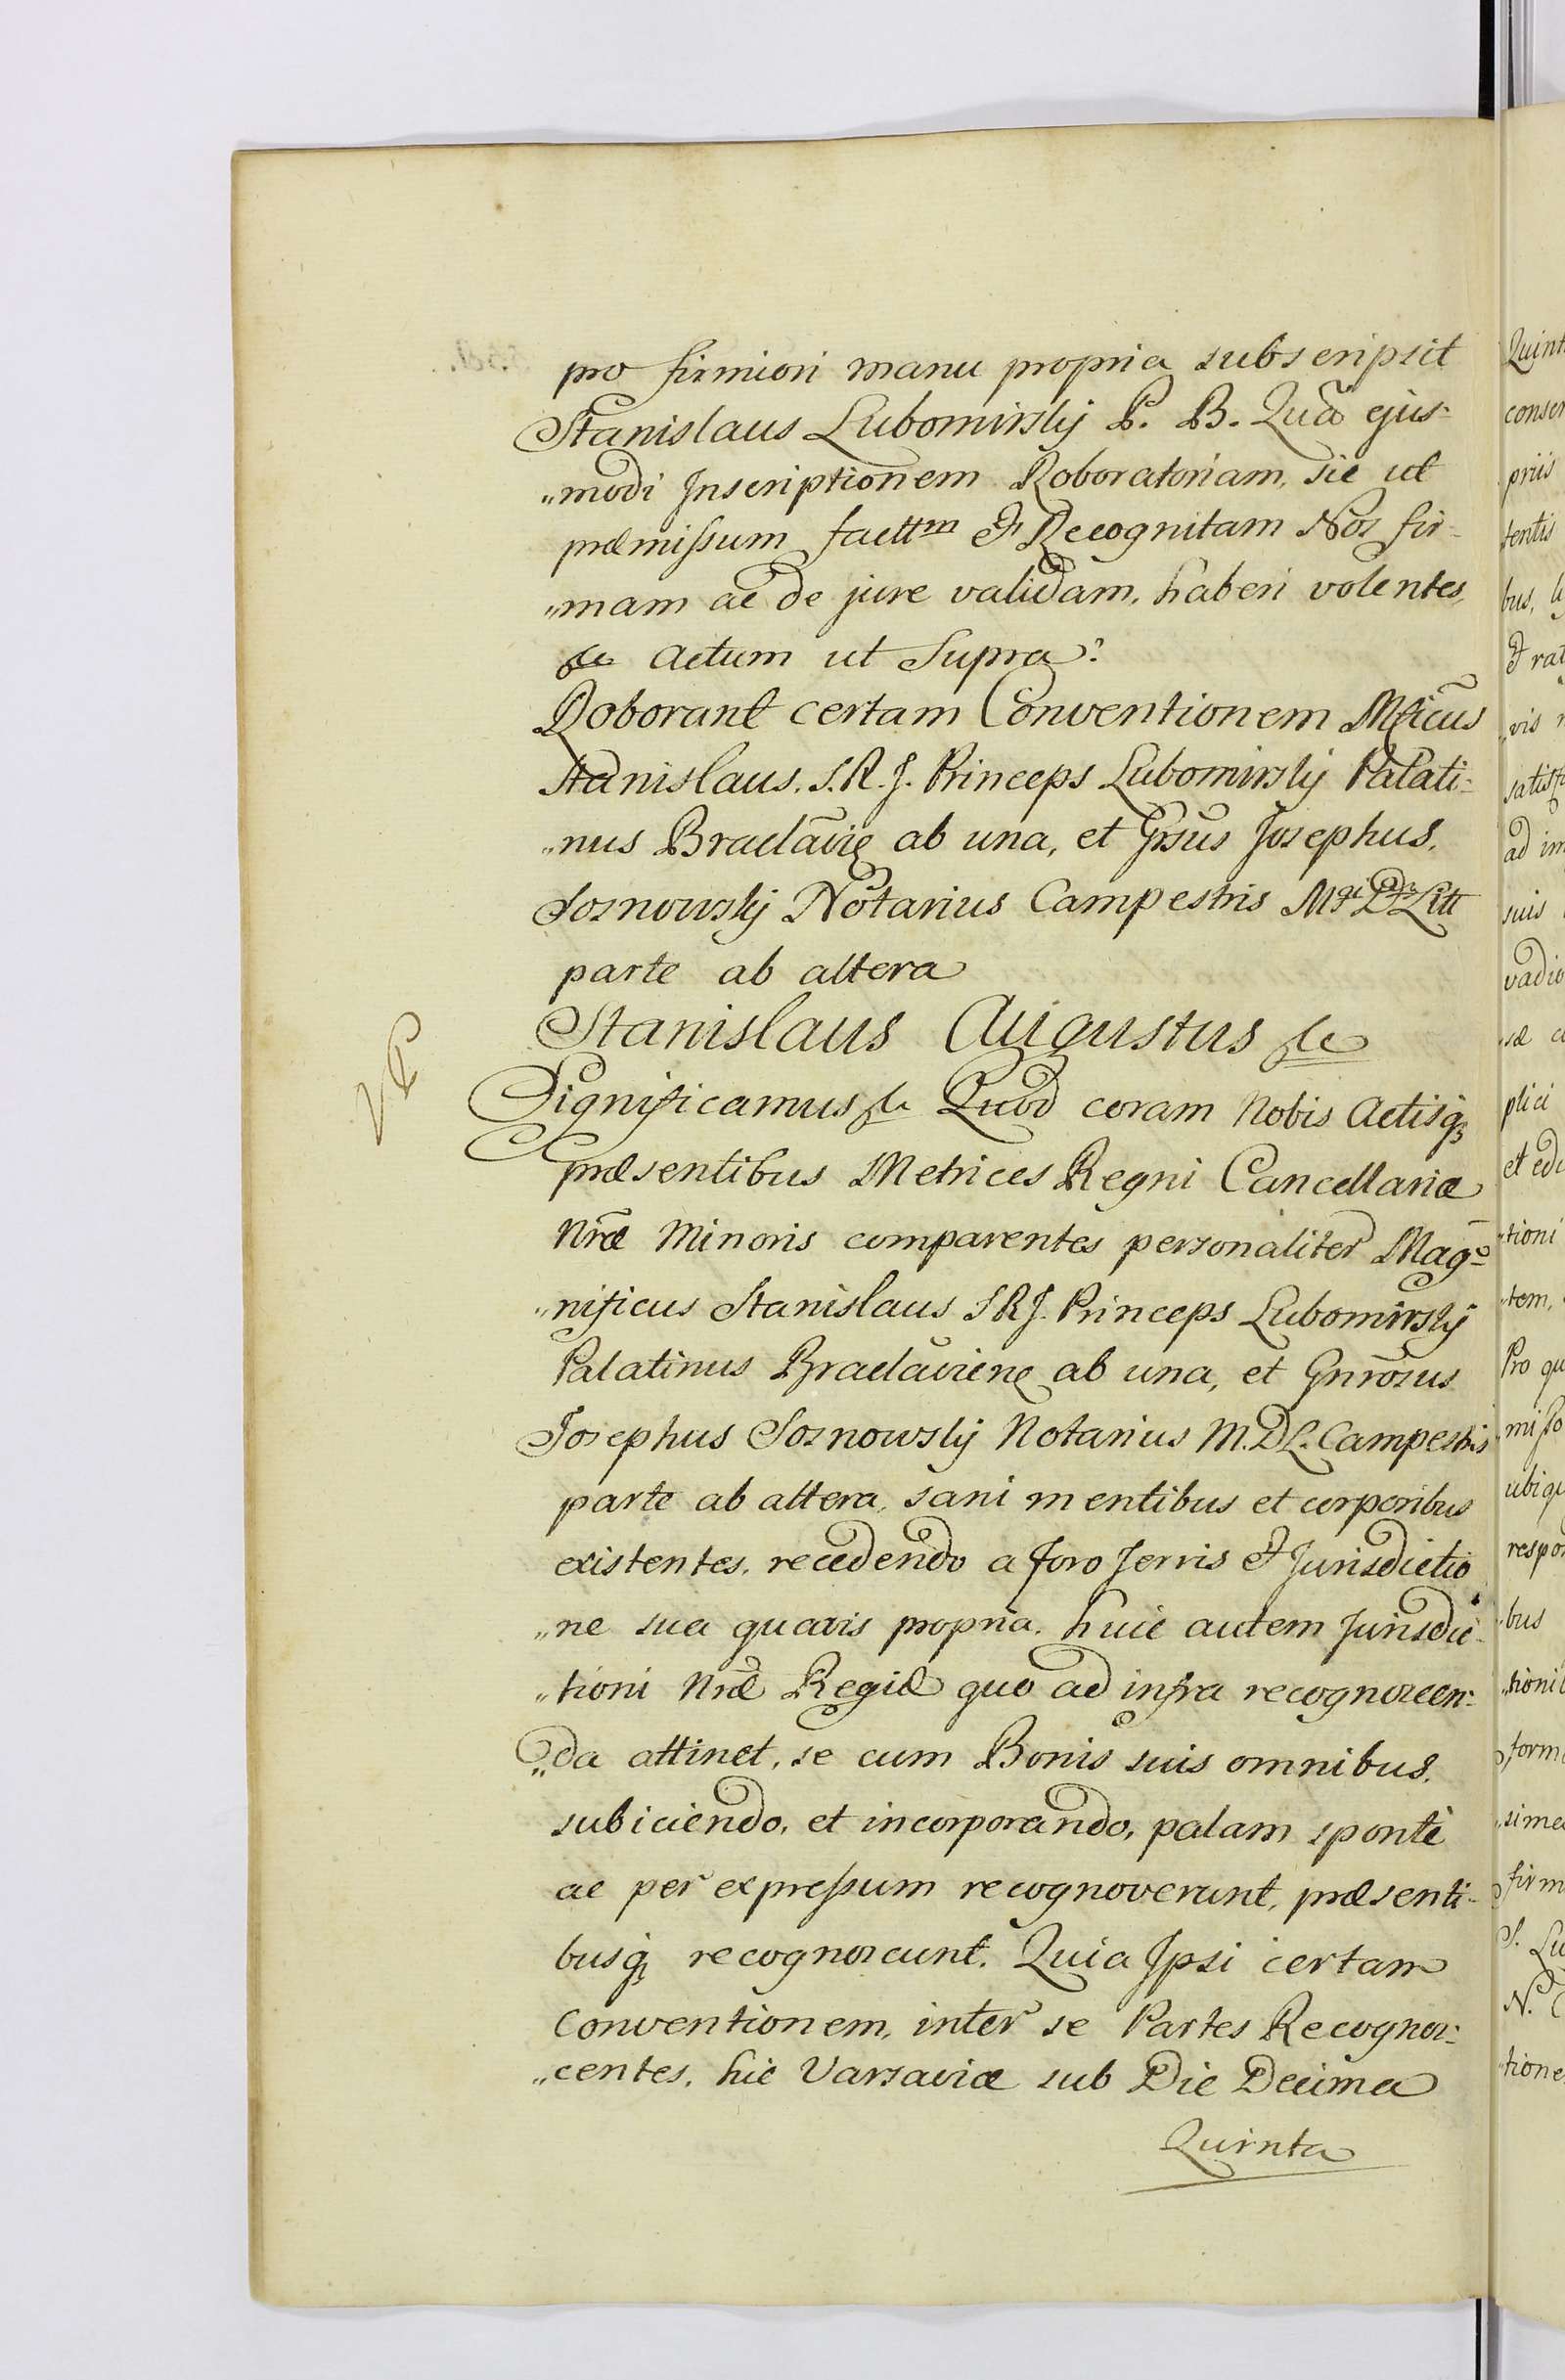 pro firmiori manu propria subscripsit
Stanislaus Lubomirskij P. B. Quā ejus-
„modi Inscriptionem Roboratoriam, sic ut
præmissum facttm et Recognitam Nos fir-
„mam ac de jure validam, haberi volentes,
&c Actum ut Supra.
Roborant certam Conventionem Mficus
Stanislaus. S.R.J. Princeps Lubomirskij Palati-
„nus Braclāvię ab una, et Grsus Josephus.
Sosnowskij Notarius Campestris Mgi D Litt
parte ab altera
Stanislaus Augustus &c
VP
Significamus &c Quod coram Nobis Actisq
præsentibus Metrices Regni Cancellariæ
Nræ Minoris comparentes personaliter Mag-
„nificus Stanislaus SRJ. Princeps Lubomirskij
Palatinus Braclavienę ab una, et Gnrosus
Josephus Sosnowskij Notarius M.D.L. Campestris
parte ab altera, sani mentibus et corporibus
existentes, recedendo a foro Terris et Jurisdictio
„ne sua quavis propria, huic autem Jurisdic-
„tioni Nræ Regiæ quo ad infra recognoscen-
„da attinet, se cum Bonis suis omnibus,
subiciendo, et incorporando, palam sponte
ac per expressum recognoverunt, præsenti-
busq recognoscunt. Quia Ipsi certam
Conventionem, inter se Partes Recognos-
„centes, hic Varsaviæ sub Die Decima
Quinta
Quint
conser
priis
tentis
bus, l
et rat
„vis
satisf
ad in
suis
vadio
sæ
plici
et edi
„tioni
„tem,
Pro qu
misso
ubiqu
respo
„bus
„tioni
form
sime
firm
S. Lu
N.
„tione